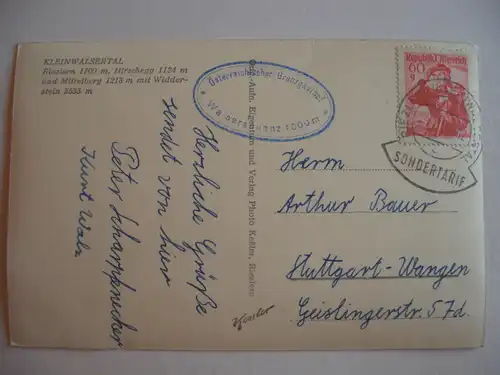 KLEINWALSERTAL
Riezlern 1100 m, Hirschegg 1124 m
und Mittelberg 1218 m mit Widder-
stein 2535 m
Herzliche Grüße
sendet von hier
Peter Scharpfnecker
Kurt Walz
Österreichischer Grenzgasthof
Walserschanz 1000 m
Aufn. Eigentum und Verlag Photo Keßler, Riezlern
Kessler
60 g
Republik Österreich
SONDERTARIF
Herrn
Arthur Bauer
Stuttgart-Wangen
Geislingerstr. 57d.